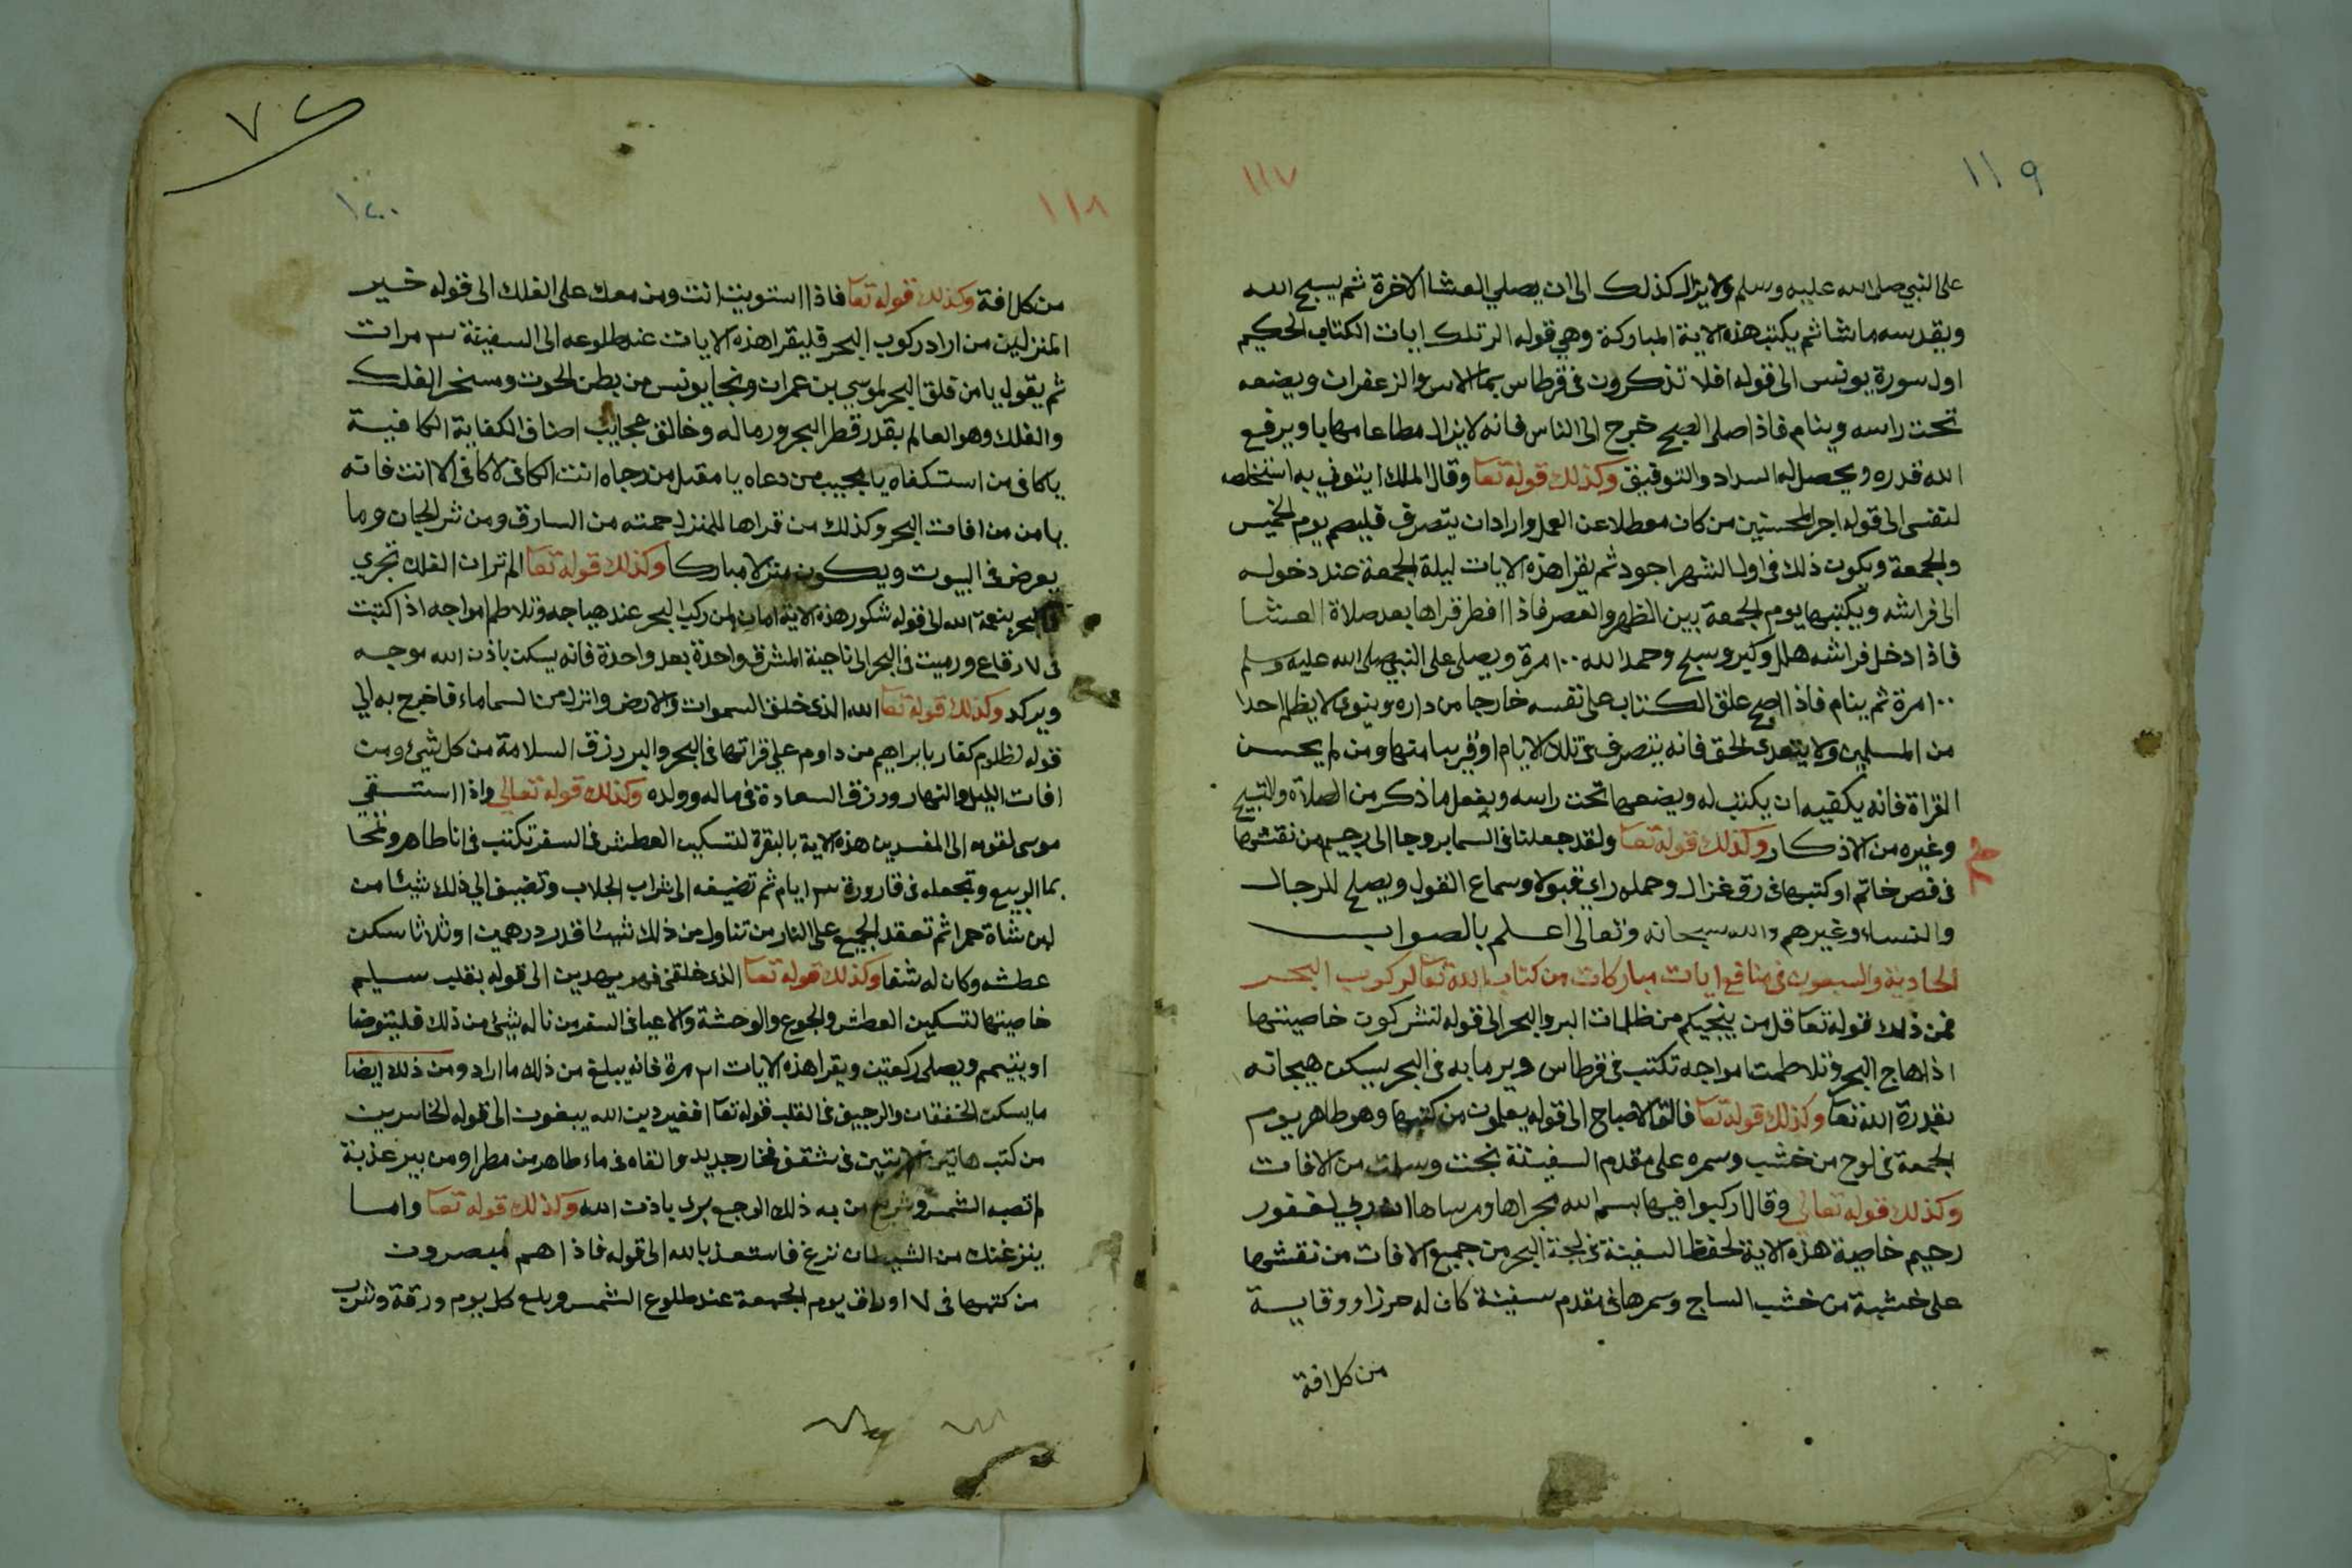 ١١٩
١١٧
على النبي صلى الله عليه وسلم ولا يزال كذلك الى ان يصلي العشا الاخرة ثم يسبح الله
ويقدسه ماشا ثم يكتب هذه الاية المباركة وهي قوله الر تلك ايات الكتاب الحكيم
اول سورة يونس الى قوله افلا تذكرون في قرطاس بما الاس والزعفران ويضعه
تحت راسه وينام فاذا صلى الصبح خرج الى الناس فانه لا يزال مطاعا مهابا ويرفع
الله قدره ويحصل له السداد والتوفيق وكذلك قوله تعا وقال الملك ايتوني به استخلصه
لنفسى الى قوله اجر المحسنين من كان معطلا عن العمل واراد ان يتصرف فليصم يوم الخميس
والجمعة ويكون ذلك في اول الشهر اجود ثم يقرا هذه الايات ليلة الجمعة عند دخوله
الى فراشه ويكتبها يوم الجمعة بين الظهر والعصر فاذا افطر قراها بعد صلاة العشا
فاذا دخل فراشه هلل وكبر وسبح وحمد الله ١٠٠ مرة ويصلى على النبي صلى الله عليه وسلم
١٠٠ مرة ثم ينام فاذا اصبح علق الكتاب على نفسه خارجا من داره وينوى لا يظلم احدا
من المسلمين ولا يتعدى الحق فانه يتصرف في تلك الايام او قريبا منها ومن لم يحسن
القراة فانه يكفيه ان يكتب له ويضعها تحت راسه ويفعل ما ذكر من الصلاة والتسبيح
وغيره من الاذكار وكذلك قوله تعا ولقد جعلنا في السما بروجا الى رجيم من نقشها
فى فص خاتم او كتبها فى رق غزال وحمله راى قبولا وسماع القول ويصلح للرجال
والنساء وغيرهم والله سبحانه وتعالى اعلم بالصواب
الحادية والسبعون فى منافع ايات مباركات من كتاب الله تعا لركوب البحر
فمن ذلك قوله تعا قل من ينجيكم من ظلمات البر والبحر الى قوله تشركون خاصيتها
اذا هاج البحر وتلاطمت امواجه تكتب في قرطاس ويرما به فى البحر يسكن هيجانه
بقدرة الله تعا وكذلك قوله تعا فالق الاصباح الى قوله يعلمون من كتبها وهو طاهر يوم
الجمعة في لوح من خشب وسمره على مقدم السفينة نجت وسلمت من الافات
وكذلك قوله تعالى وقال اركبوا فيها بسم الله مجراها ومرساها ان ربي لغفور
رحيم خاصية هذه الاية لحفظ السفينة في لجة البحر من جميع الافات من نقشها
على خشبة من خشب الساج وسمرها فى مقدم سفينة كان له حرزا ووقاية
من كل افة
١٢٠
١١٨
من كل افة وكذلك قوله تعا فاذا استويت انت ومن معك على الفلك الى قوله خير
المنزلين من اراد ركوب البحر فليقرا هذه الايات عند طلوعه الى السفينة ٣ مرات
ثم يقول يا من فلق البحر لموسى بن عمران ونجا يونس من بطن الحوت وسخر الفلك
والفلك وهو العالم بقدر قطر البحر ورماله وخالق عجايب اصناف الكفاية الكافية
يا كافى من استكفاه يا مجيب من دعاه يا مقبل من رجاه انت الكافى لا كافى الا انت فانه
يامن من افات البحر وكذلك من قراها للمنزل حمته من السارق ومن شر الجان وما
يعرض فى البيوت ويكون منزلا مباركا وكذلك قوله تعا الم تر ان الفلك تجري
فى البحر بنعمة الله الى قوله شكور هذه الاية امان لمن ركب البحر عند هياجه وتلاطم امواجه اذا كتبت
فى ٧ رقاع ورميت فى البحر الى ناحية المشرق واحدة بعد واحدة فانه يسكن باذن الله موجه
ويركد وكذلك قوله تعا الله الذى خلق السموات والارض وانزل من السماء ماء فاخرج به الي
قوله لظلوم كفار بابراهيم من داوم على قراتها فى البحر والبر رزق السلامة من كل شيء ومن
افات الليل والنهار ورزق السعادة في ماله وولده وكذلك قوله تعالى واذا استسقي
موسى لقومه الى المفسدين هذه الاية بالبقرة لتسكين العطش فى السفر تكتب فى انا طاهر وتمحا
بما الربيع وتجعله فى قارورة ٣ ايام ثم تضيفه الى شراب الجلاب وتضيف الي ذلك شيئا من
لبن شاة حمرا ثم تعقد الجميع على النار من تناول من ذلك شيئا قدر درهمين او ثلاثا سكن
عطشه وكان له شفا وكذلك قوله تعا الذى خلقنى فهو يهدين الى قوله بقلب سليم
خاصيتها لتسكين العطش والجوع والوحشة والاعيا فى السفر من ناله شيئ من ذلك فليتوضا
او يتيمم ويصلى ركعتين ويقرا هذه الايات ٣١ مرة فانه يبلغ من ذلك ما اراد ومن ذلك ايضا
ما يسكن الخفقان والرجيف فى القلب قوله تعا افغير دين الله يبغون الى قوله الخاسرين
من كتب هاتين الايتين فى شقف فخار جديد والقاه فى ماء طاهر من مطر او من بير عذبة
لم تصبه الشمس وشربه من به ذلك الوجع برى باذن الله وكذلك قوله تعا واما
ينزغنك من الشيطان نزغ فاستعذ بالله الى قوله فاذا هم مبصرون
من كتبها فى ٧ اوراق يوم الجمعة عند طلوع الشمس وبلع كل يوم ورقة وشرب